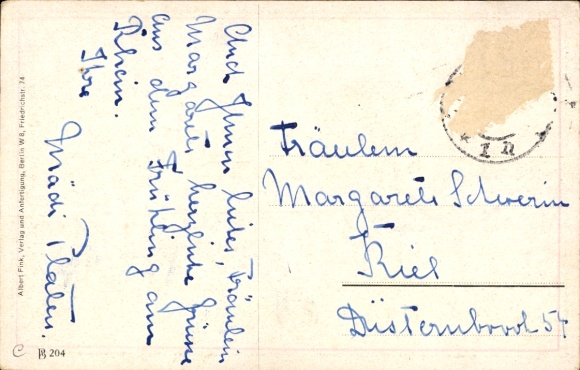 Auch Ihnen liebes Fräulein
Margarete herzliche Grüsse
aus dem Frühling am
Rhein.
Ihre
Mädi Platen.
Fräulein
Margarete Schwerin
Kiel
Düsternbrook 54
Albert Fink, Verlag und Anfertigung, Berlin W 8, Friedrichstr. 74
204